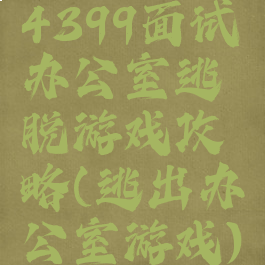 4399面试
办公室逃
脱游戏攻
略(逃出办
公室游戏)